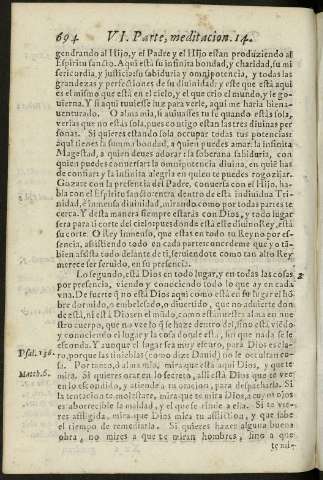 694 VI. Parte, meditacion. 14.
gendrando al Hijo, y el Padre y el Hijo estan produziendo al
Espiritu sancto. Aqui està su infinita bondad, y charidad, su mi
sericordia, y justicia: su sabiduria y omnipotencia, y todas las
grandezas y perfecciones de su diuinidad: y esse que està aqui
es el mismo que està en el cielo, y el que criò el mundo, y le go-
uierna. Y si aqui tuuiesse luz para verle, aqui me haria biena-
uenturado. O alma mia, si auiuasses tu fè quando estàs sola,
verias que no estàs sola, pues contigo estan las tres diuinas per
sonas. Si quieres estando sola ocupar todas tus potencias:
aqui tienes la summa bondad, a quien puedes amar: la infinita
Magestad, a quien deues adorar: la soberana sabiduria, con
quien puedes conuersar: la omnipotencia diuina, en quiē has
de confiar: y la infinita alegria en quien te puedes regozijar.
Gozate con la presencia del Padre, conuersa con el Hijo, habla
con el Espiritu sancto: entra dentro de està indiuidua Tri-
nidad, è inmensa diuinidad, mirando como por todas partes te
cerca. Y desta manera siempre estaràs con Dios, y todo lugar
sera para ti corte del cielo: pues donde està esse diuino Rey, està
su corte. O Rey inmenso, que estas en todo tu Reyno por es-
sencia, assistiendo todo en cada parte: concedeme que yo tā-
bien assista todo delante de ti, siruiendote como tan alto Rey
merece ser seruido, en su presencia.
Lo segundo, està Dios en todo lugar, y en todas las cosas 2
por presencia, viendo y conociendo todo lo que ay en cada
vna. De suerte q̄ no està Dios aqui como està en su lugar el hō
bre dormido, o embelesado, o diuertido, que no aduierte don
de està, ni està Dios en el mūdo, como està nuestra alma en nue
stro cuerpo, que no vee lo q̄ se haze dentro del, sino està viēdo
y conociendo el lugar y la cosa donde està, sin que nada se le
Psal. 138. esconda. Y aunque el lugar sea muy escuro, para Dios es cla-
ro, porque las tinieblas (como dize Dauid) no le ocultan co-
Matth. 6. sa. Por tanto, ô alma mia, mira que està aqui Dios, y que te
mira. Si quieres orar en lo secreto, alli està Dios que te vee
en lo escondido, y atiende a tu oracion, para despacharla. Si
la tentacion te molestare, mira que te mira Dios, a cuyos ojos
es aborrecible la maldad, y el que se rinde a ella. Si te vie-
res afligida, mira que Dios mira tu afliccion, y que sabe
el tiempo de remediarla. Si quieres hazer alguna buena
obra, no mires a que te miran hombres, sino a que